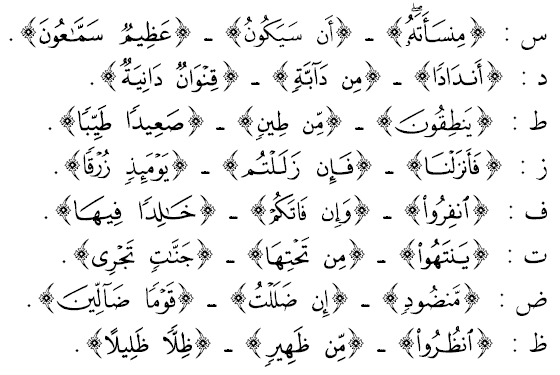 س : ﴿مِنسَأَتَهُۥۖ﴾ ـ ﴿أَن سَيَكُونُ﴾ ـ ﴿عَظِيمٞ سَمَّٰعُونَ﴾ .
د : ﴿أَندَادٗا﴾ ـ ﴿مِن دَآبَّةٖ﴾ ـ ﴿قِنۡوَانٞ دَانِيَةٞ﴾ .
ط : ﴿يَنطِقُونَ﴾ ـ ﴿مِّن طِينٖ﴾ ـ ﴿صَعِيدٗا طَيِّبٗا﴾ .
ز : ﴿فَأَنزَلۡنَا﴾ ـ ﴿فَإِن زَلَلۡتُم﴾ ـ ﴿يَوۡمَئِذٖ زُرۡقٗا﴾ .
ف : ﴿ٱنفِرُواْ﴾ ـ ﴿وَإِن فَاتَكُمۡ﴾ ـ ﴿خَٰلِدٗا فِيهَا﴾ .
ت : ﴿يَنتَهُواْ﴾ ـ ﴿مِن تَحۡتِهَا﴾ ـ ﴿جَنَّٰتٖ تَجۡرِي﴾ .
ض : ﴿مَّنضُودٖ﴾ ـ ﴿إِن ضَلَلۡتُ﴾ ـ ﴿قَوۡمٗا ضَآلِّينَ﴾ .
ظ : ﴿ٱنظُرُواْ﴾ ـ ﴿مِّن ظَهِيرٖ﴾ ـ ﴿ظِلّٗا ظَلِيلًا﴾ .